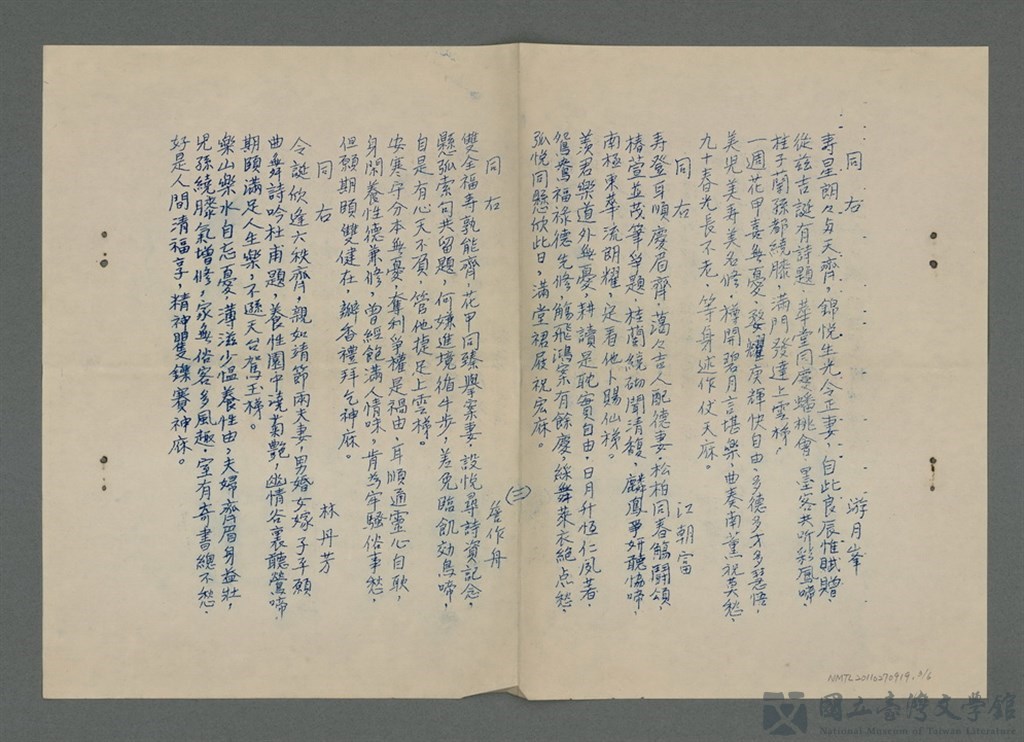 同右　游月峯
壽星朗々与天齊，錦悅生光令正妻，自此良辰惟賦贈，
從茲吉誕有詩題，華堂同慶蟠桃會，墨客共听彩鳳啼，
桂子蘭孫都繞膝，滿門發達上雲梯，
一週花甲喜無憂，婺耀庚輝快自由，多德多才多慧悟，
美児美寿美名修，樽開碧月言堪樂，曲奏南薰祝莫愁，
九十春光長不老，等身述作仗天庥。
同右　江朝富
寿登耳順慶眉齊，藹々吉人配德妻，松柏同春觴鬪頌，
椿萱並茂筆爭題，桂蘭繞砌聞清馥，麟鳳爭妍聽協啼，
南極東華流朗耀，延看他卜賜仙梯。
羨君樂道外無憂，耕讀是耽實自由，日月升恒仁夙著，
鴛鴦福祿德先修，觴飛鴻案有餘慶，綵舞萊衣絕点愁，
弧悅同懸欣此日，滿堂裙屐祝宏庥。
(三)
同右　詹作舟
雙全福寿孰能齊，花甲同臻舉案妻，設悅尋詩資記念，
懸弧索句共留題，何嫌進境循牛步，差免臨飢効鳥啼，
自是有心天不負，管他捷足上雲梯。
安寒守分本無憂，奪利爭權是禍由，耳順通靈心自耿，
身閑養性德兼修，曾經飽滿人情味，肯為牢騷俗事愁，
但願期頤雙健在，瓣香禮拜乞神庥。
同右　林丹芳
令誕欣逢六秩齊，親如靖節兩夫妻，男婚女嫁子平願，
曲舞詩吟杜甫題，養性園中澆菊艷，幽情谷裏聽鶯啼，
期頤滿足人生樂，不遜天台駕玉梯。
樂山樂水自忘憂，薄滋少慍養性由，夫婦齊眉身益壯，
児孫繞膝氣增修，家無俗客多風趣，室有奇書總不愁，
好是人間清福享，精神矍鑠賽神庥。
NMTL20110270919. 3/6
國立臺灣文學館
National Museum of Taiwan Literature